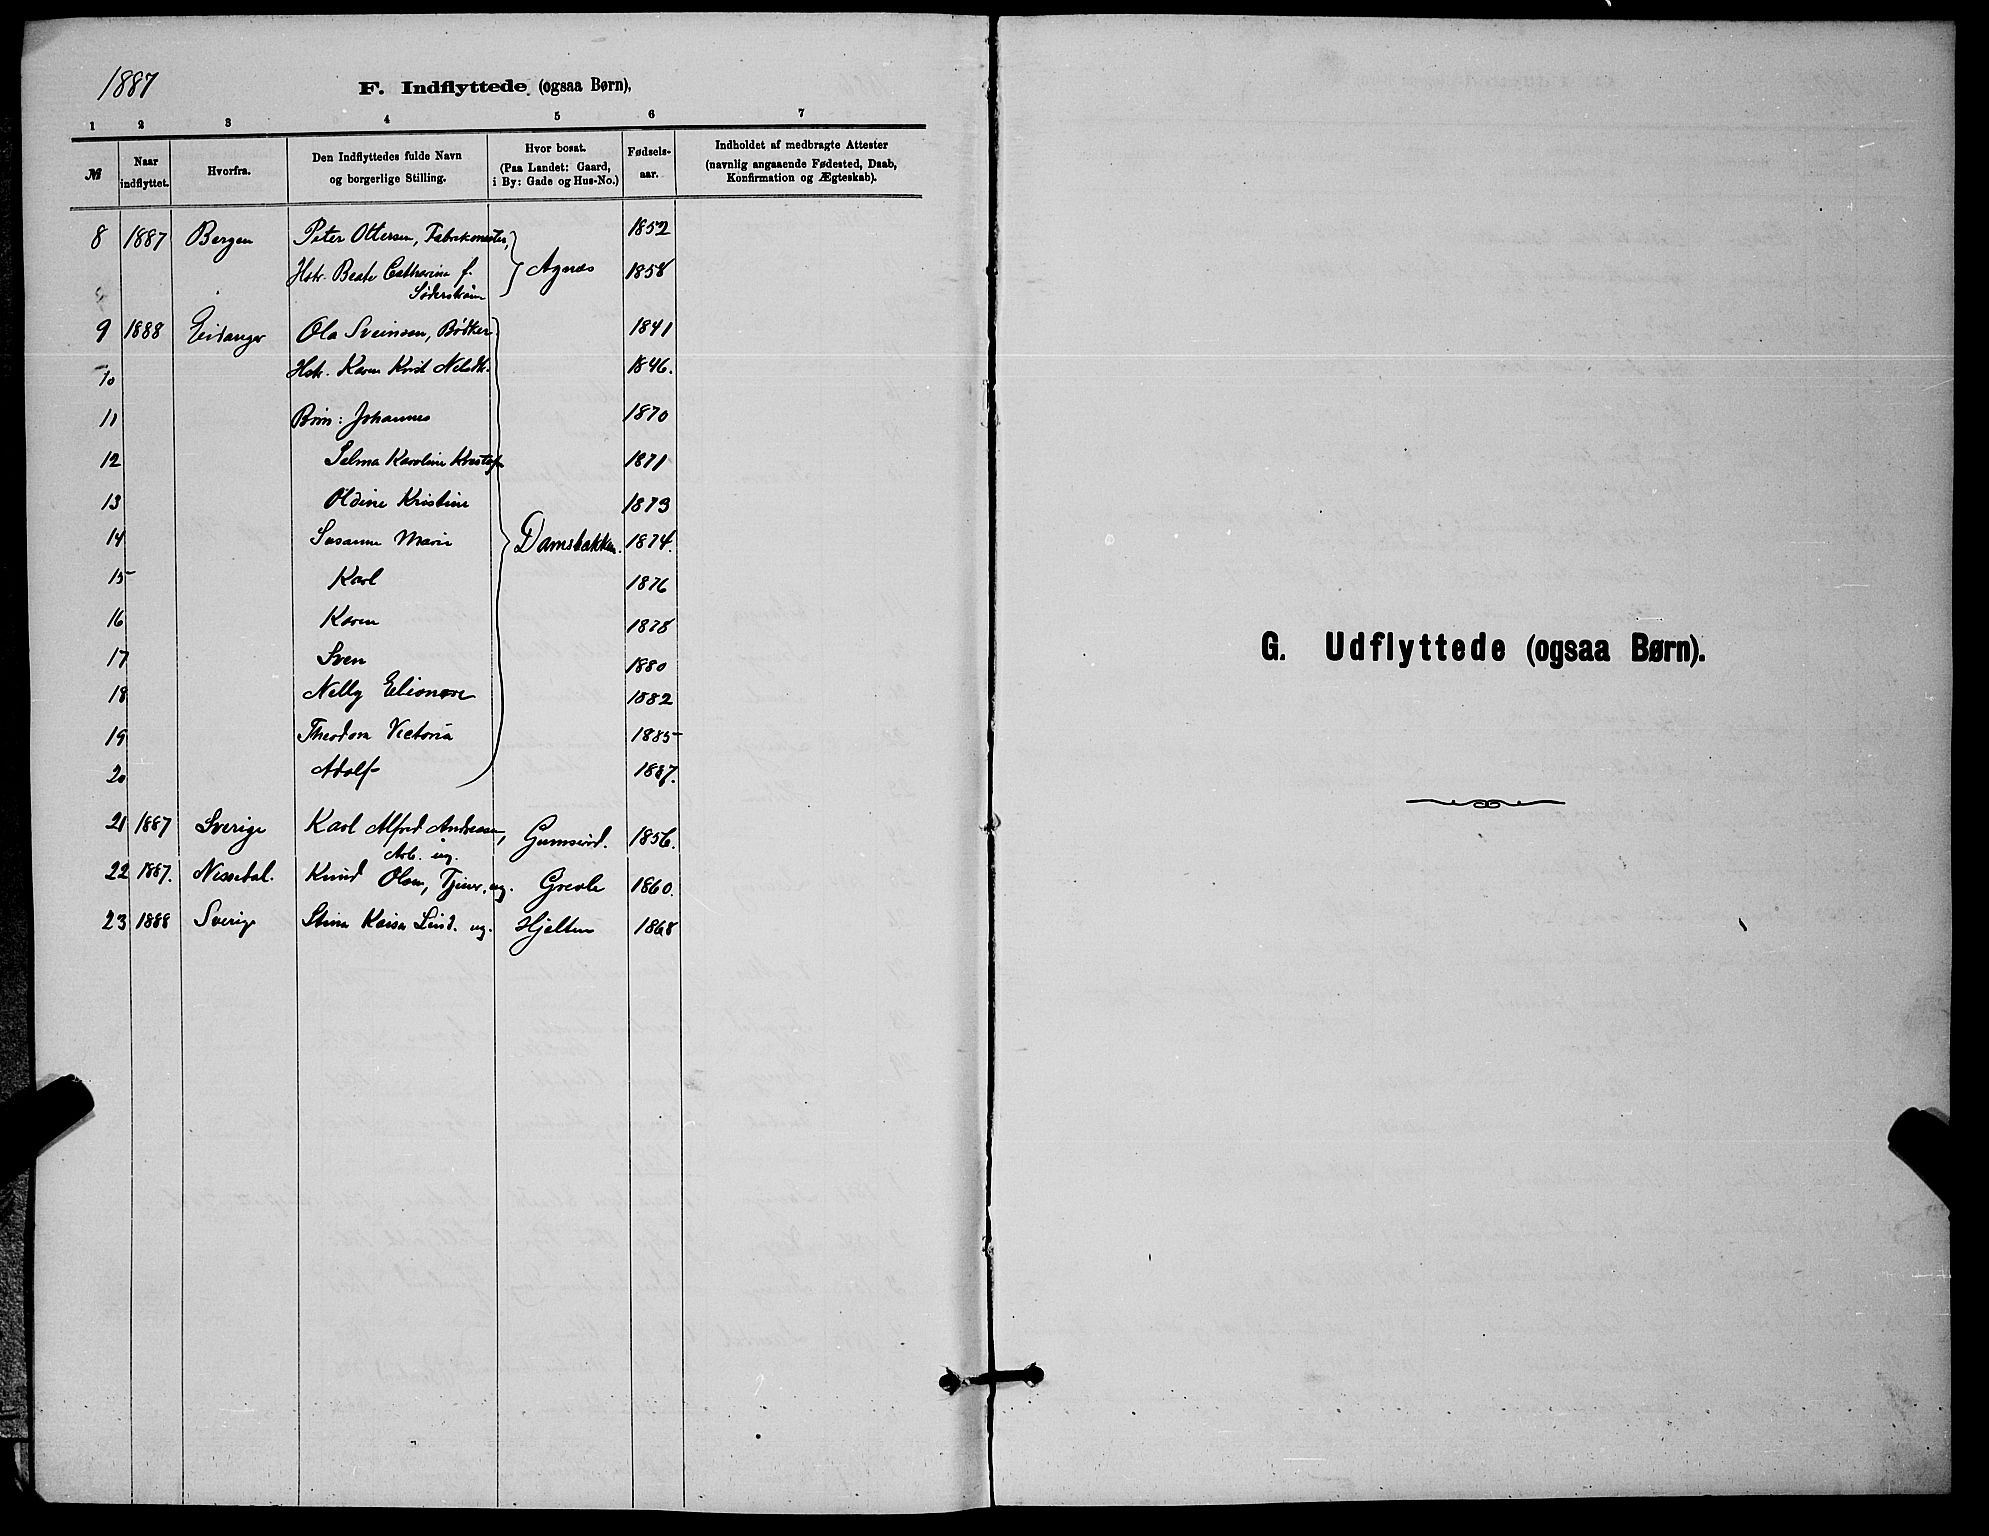 1887
F. Indflyttede (ogsaa Børn),
1 2 3 4 5 6 7
№ Naar indflyttet. Hvorfra. Den Indflyttedes fulde Navn og borgerlige Stilling. Hvor bosat. (Paa Landet: Gaard, i By: Gade og Hus-No.) Fødsels-aar. Indholdet af medbragte Attester (navnlig angaaende Fødested, Daab, Konfirmation og Ægteskab).
8 1887 Bergen Peter Ottersen, Fabrikmester, 1852
Hstr. Beate Cathrine f. Agnæs 1858
9 1888 Eidanger Ola Sveinsen, Bødker 1841
10 Hstr. Karen Krist Nilsdtr. 1846.
11 Børn: Johannes 1870
12 Selma Karoline 1871
13 Oldine Kristine 1873
14 Susanne Marie Damsbakken. 1874.
15 Karl 1876
16 Karen 1878
17 Sven 1880
18 Nelly Elionore 1882
19 Theodora Victoria 1885
20 Adolf 1887.
21 1887 Sverige Karl Alfred Andreasen, 1856.
Arb. ug.
22 1887. Nissedal. Knud Olsen, Tjener, ug. 1860.
23 1888 Sverige Stina Kaisa Lind. ug. 1868
G. Udflyttede (ogsaa Børn).